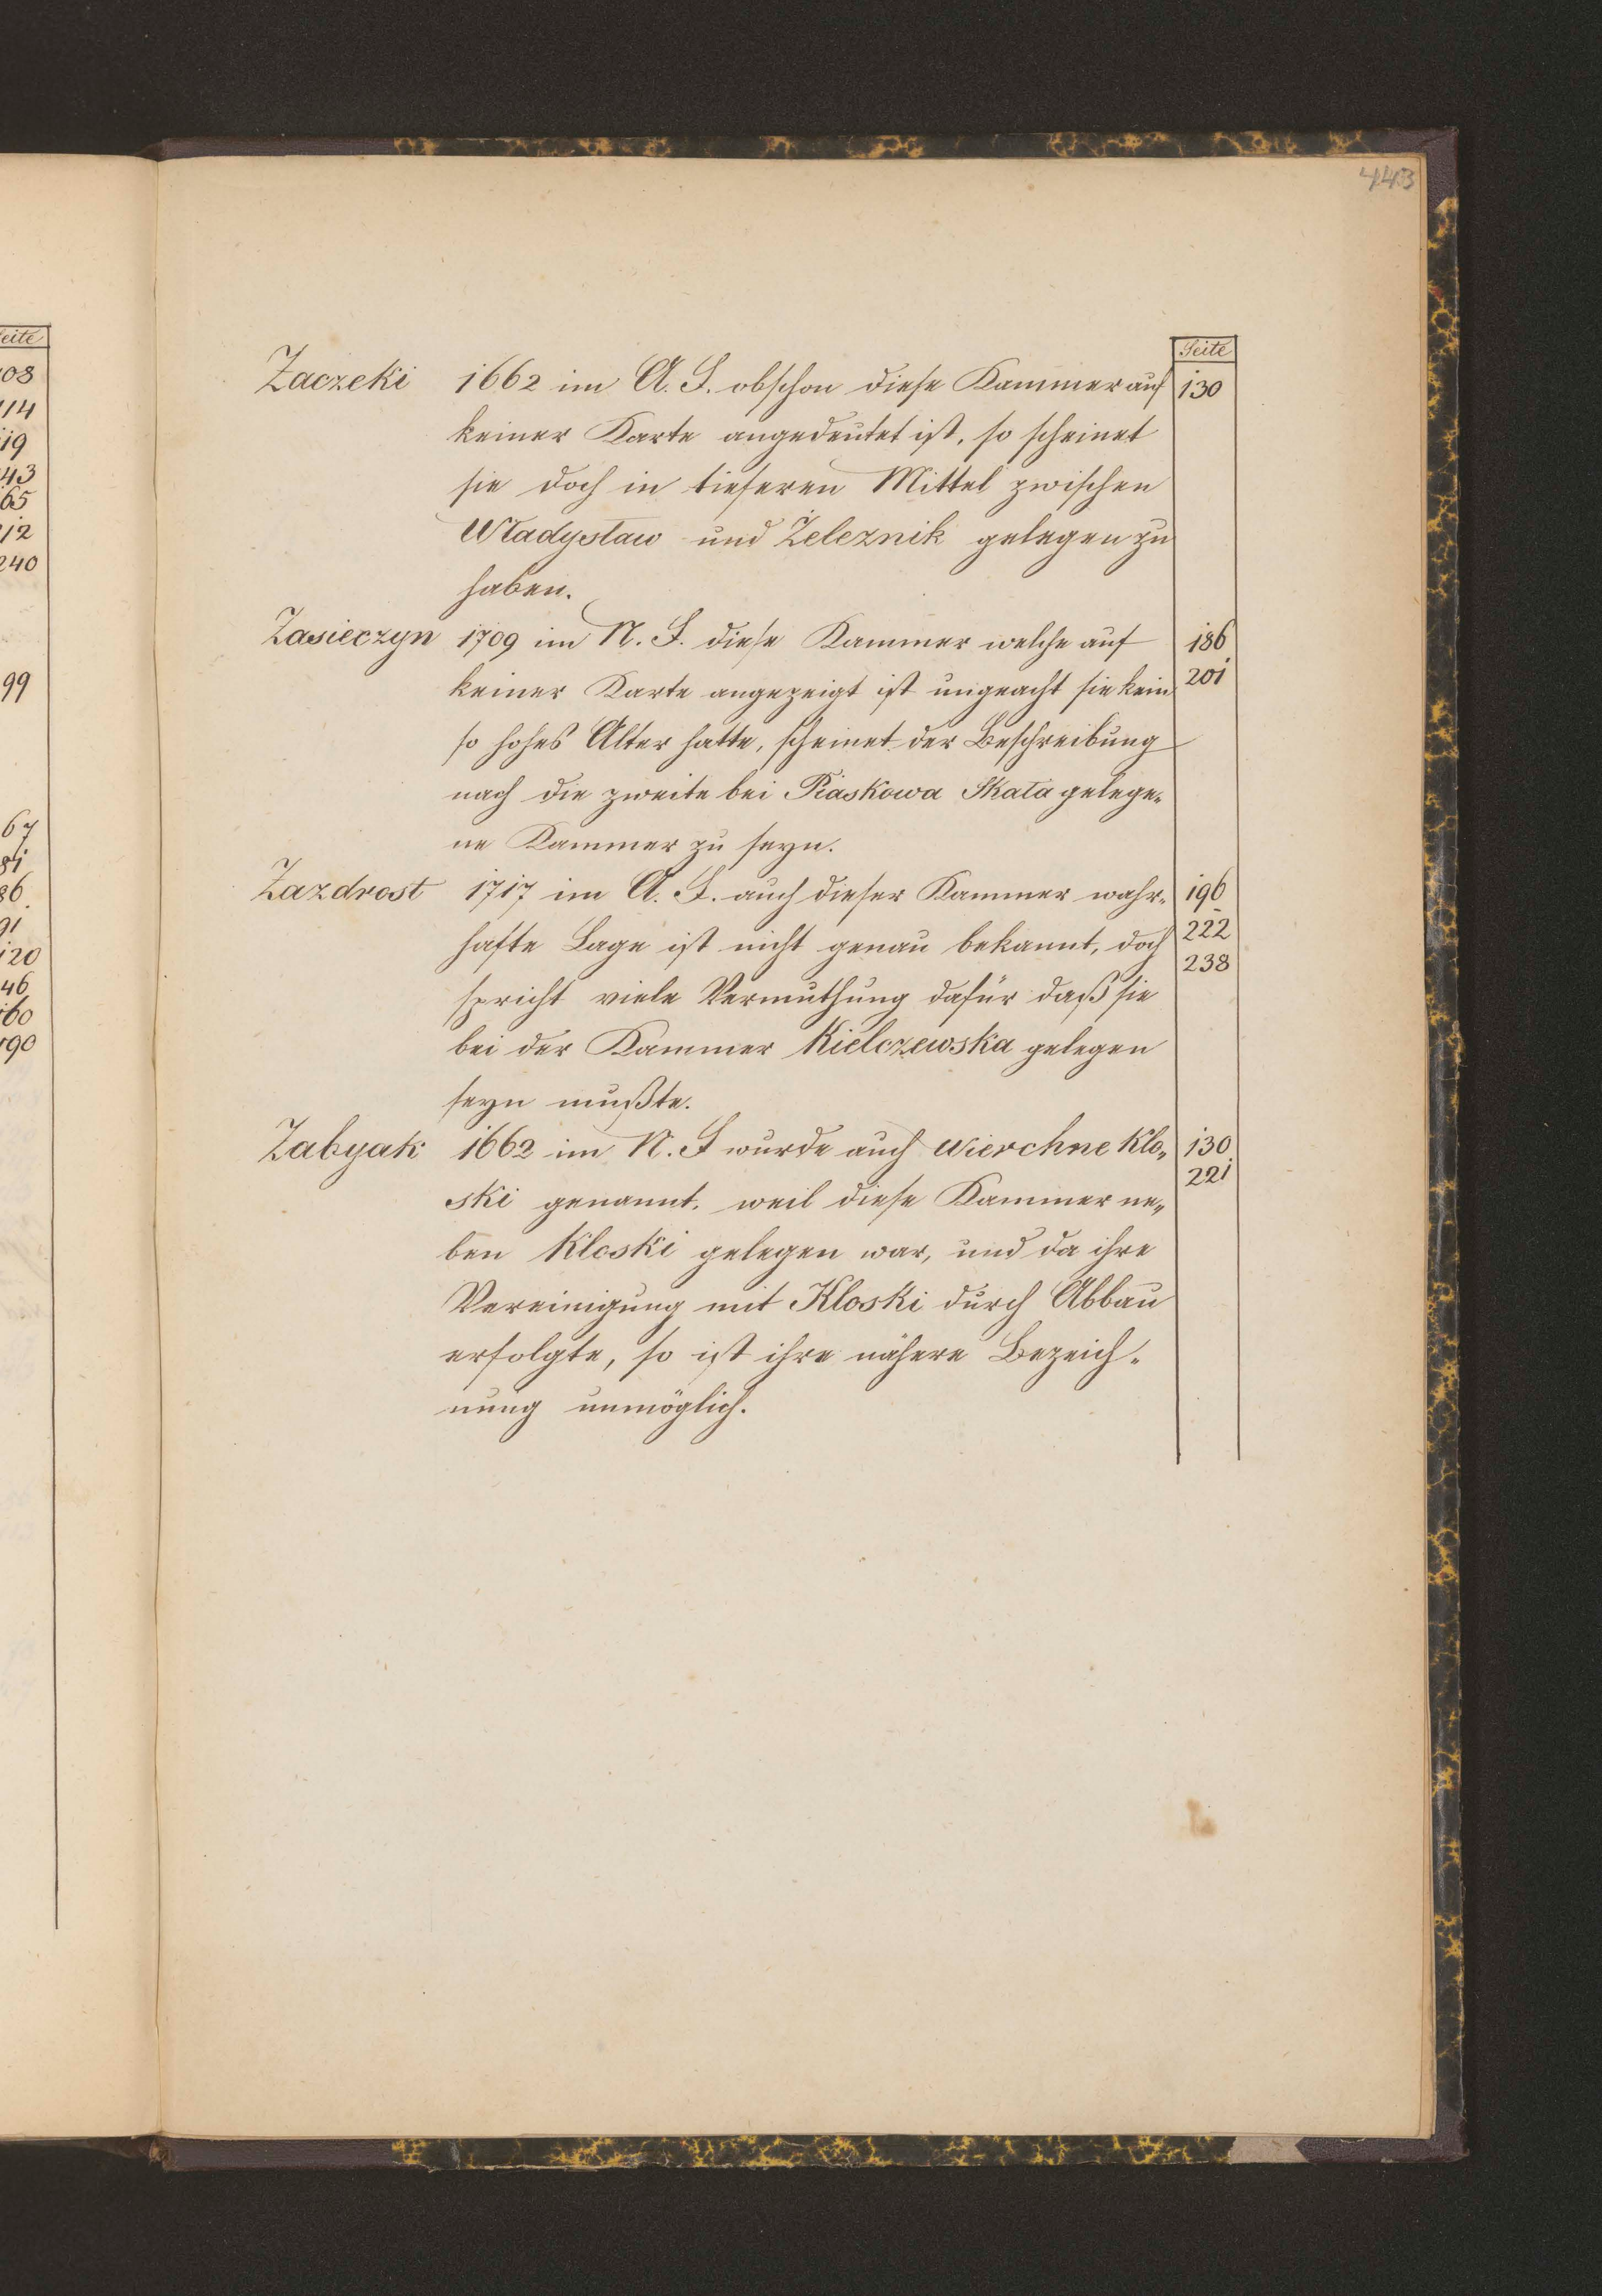 443
Seite
Zaczeki 1662 im A. F. obschon diese Kammer auf 130
keiner Karte angedeutet ist, so scheinet
sie doch in tieferen Mittel zwischen
Władysław und Żeleznik gelegen zu
haben.
Zasieczyn 1709 im N. F. diese Kammer welche auf 186
keiner Karte angezeigt ist ungeacht sie kein 201
so hohes Alter hatte, scheinet der Beschreibung
nach die zweite bei Piaskowa Skała gelege-
ne Kammer zu seyn.
Zazdrost 1717 im A. F. auch dieser Kammer wahr- 196
hafte Lage ist nicht genau bekannt, doch 222
spricht viele Vermuthung dafür daß sie 238
bei der Kammer Kielczewska gelegen
seyn mußte.
Zabyak 1662 im N. F wurde auch Wierchne Klo- 130
ski genannt, weil diese Kammer ne- 221
ben Kloski gelegen war, und da ihre
Vereinigung mit Kloski durch Abbau
erfolgte, so ist ihre nähere Bezeich-
nung unmöglich.